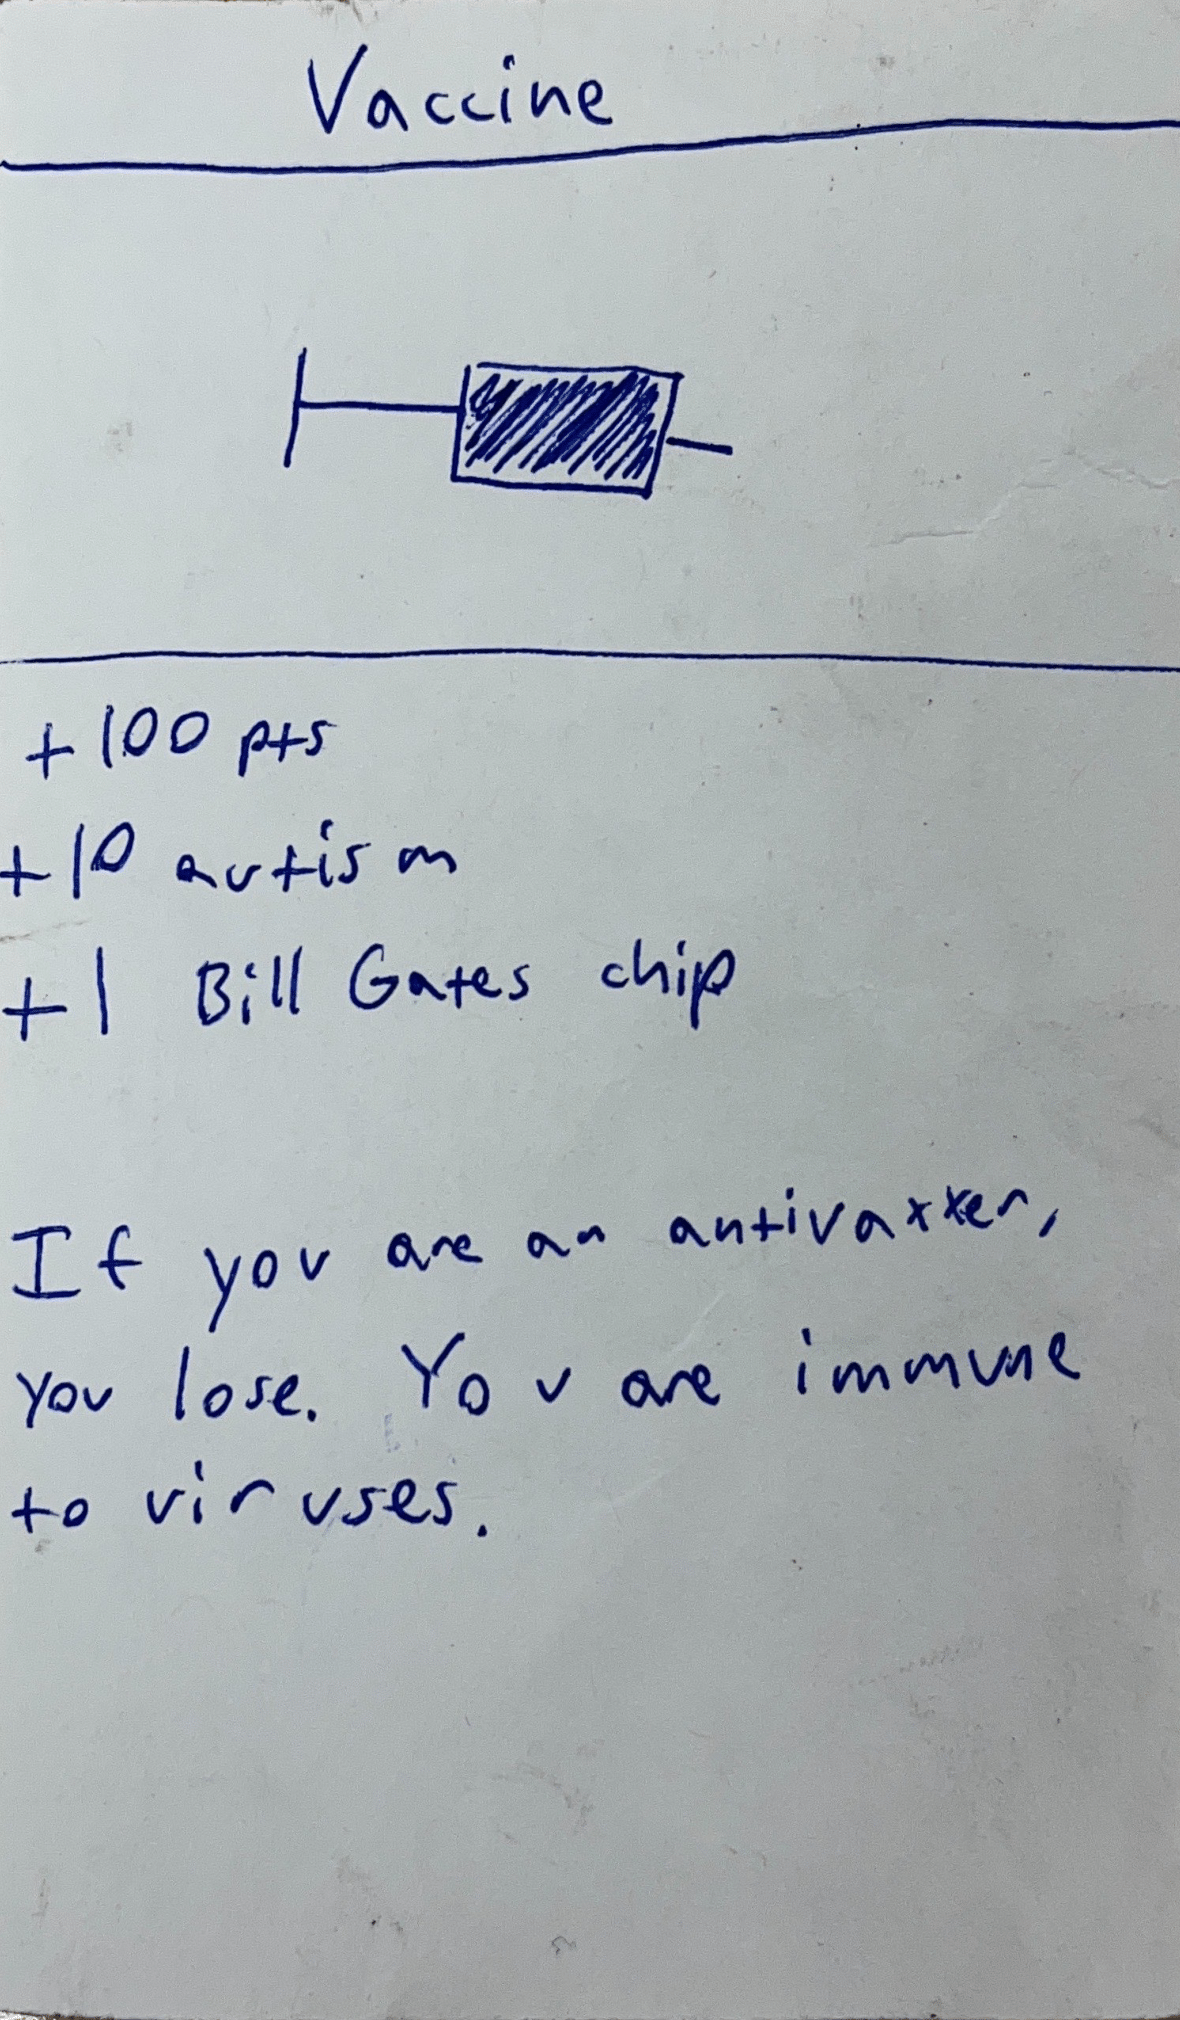 Vaccine
+100 pts
+10 autism
+1 Bill Gates chip
If you are an antivaxxer,
you lose. You are immune
to viruses.